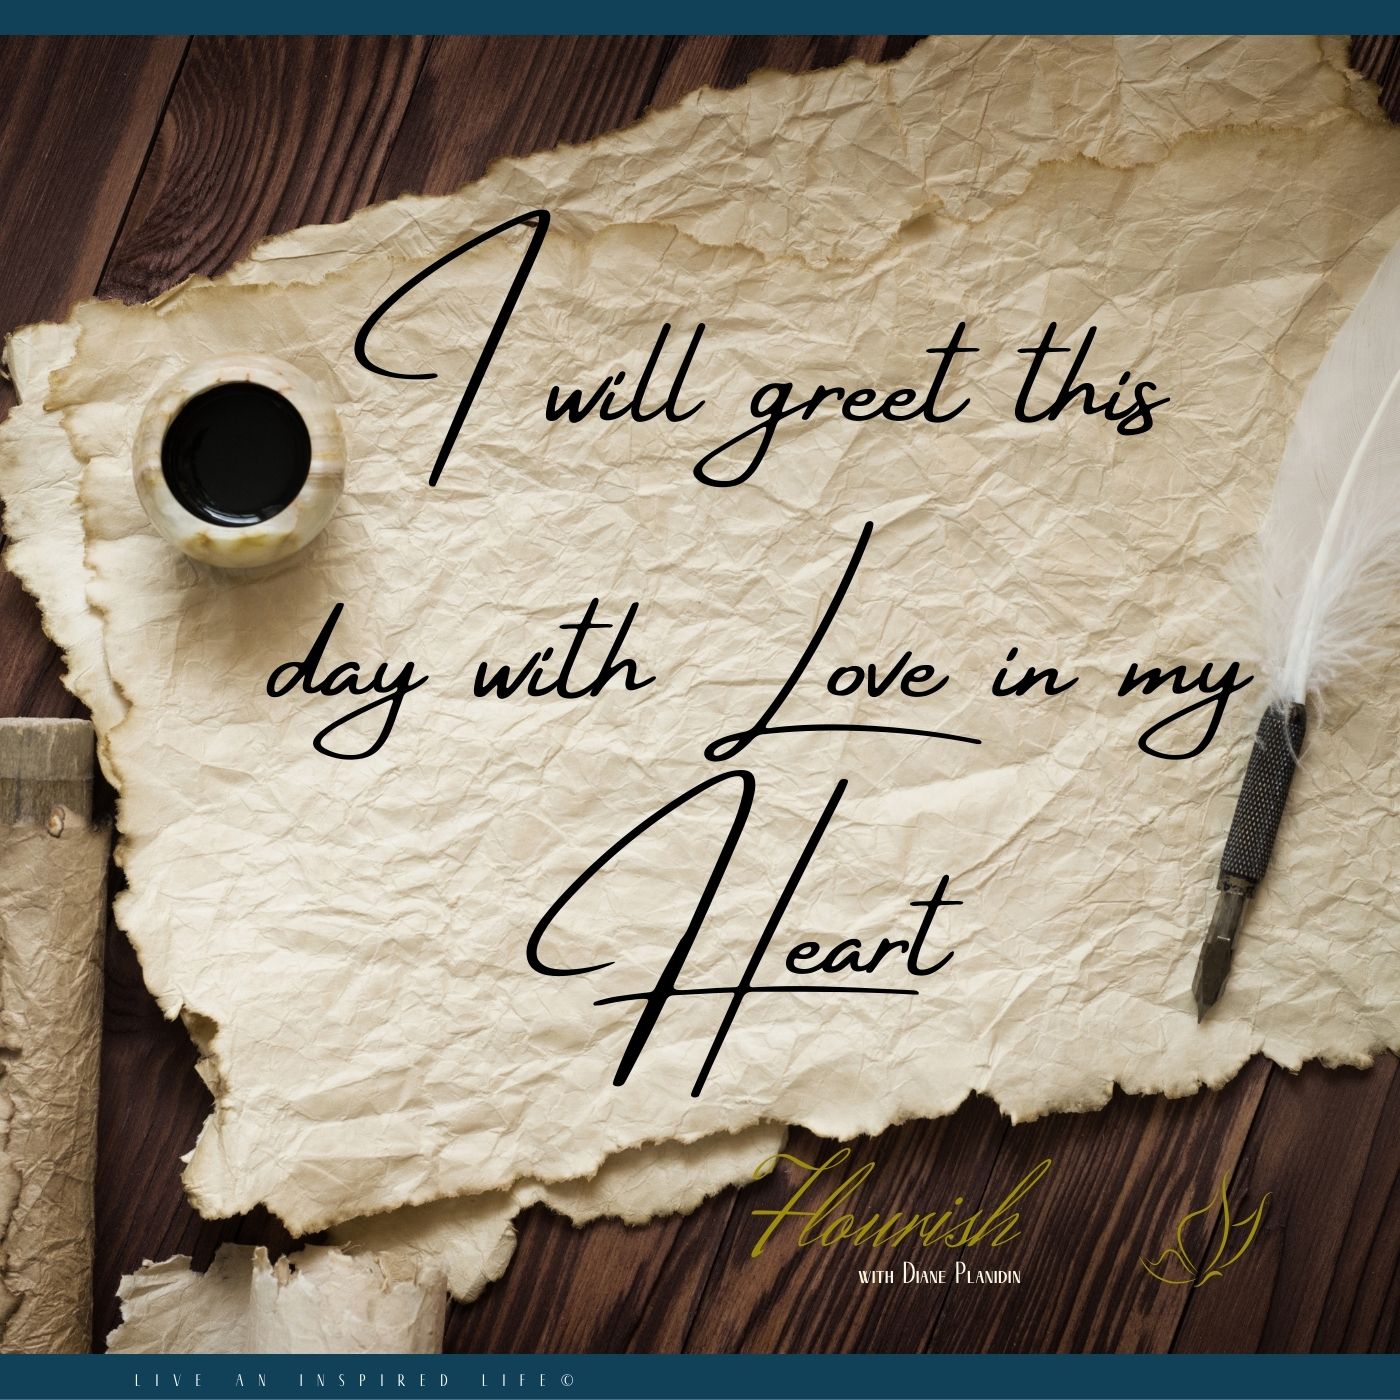 I will greet this
day with Love in my
Heart
Flourish
with Diane Planidin
LIVE AN INSPIRED LIFE©